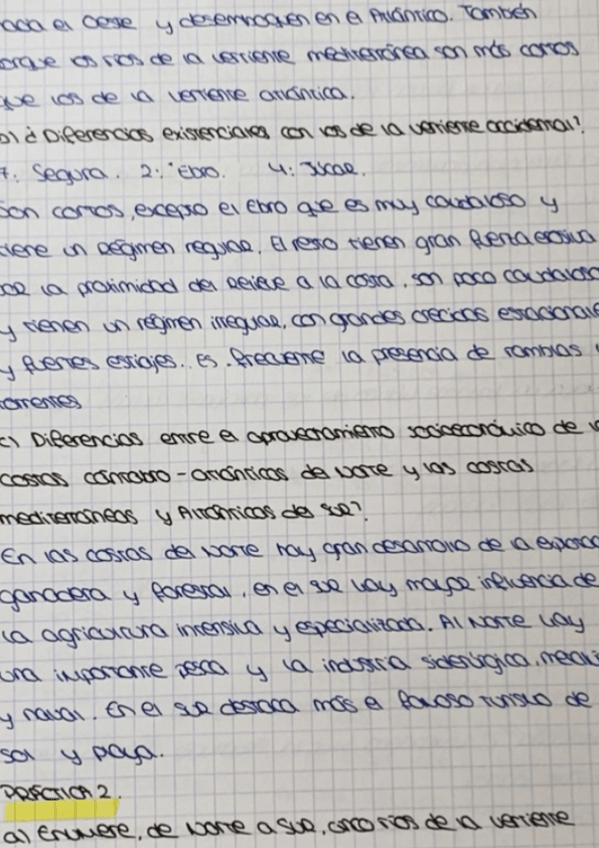 hacia el oeste y desembocan en el Atlántico. También
porque os rios de la vertiente mediterránea son más cortos
que los de la vertiente atlántica.
b) ¿ Diferencias existenciales con los de la vertiente occidental?
7: Segura. 2: Ebro. 4: Júcar.
Son cortos, excepto el Ebro que es muy caudaloso y
tiene un régimen regular. El resto tienen gran fuerza erosiva
por la proximidad del relieve a la costa, son poco caudalosos
y tienen un régimen irregular, con grandes crecidas estacionales
y fuertes estiajes. Es frecuente la presencia de ramblas
torrentes
c) Diferencias entre el aprovechamiento socioeconómico de
costas cántabro-atlánticas del norte y las costas
mediterráneas y Atlánticas del sur?
En las costas del norte hay gran desarrollo de la
ganadera y forestal, en el sur hay mayor influencia de
la agricultura intensiva y especializada. Al Norte hay
una importante pesca y la industria siderúrgica,
y naval. En el sur destaca más el famoso turismo de
sol y playa.
PRÁCTICA 2.
a) Enumere, de norte a sur, cinco rios de la vertiente